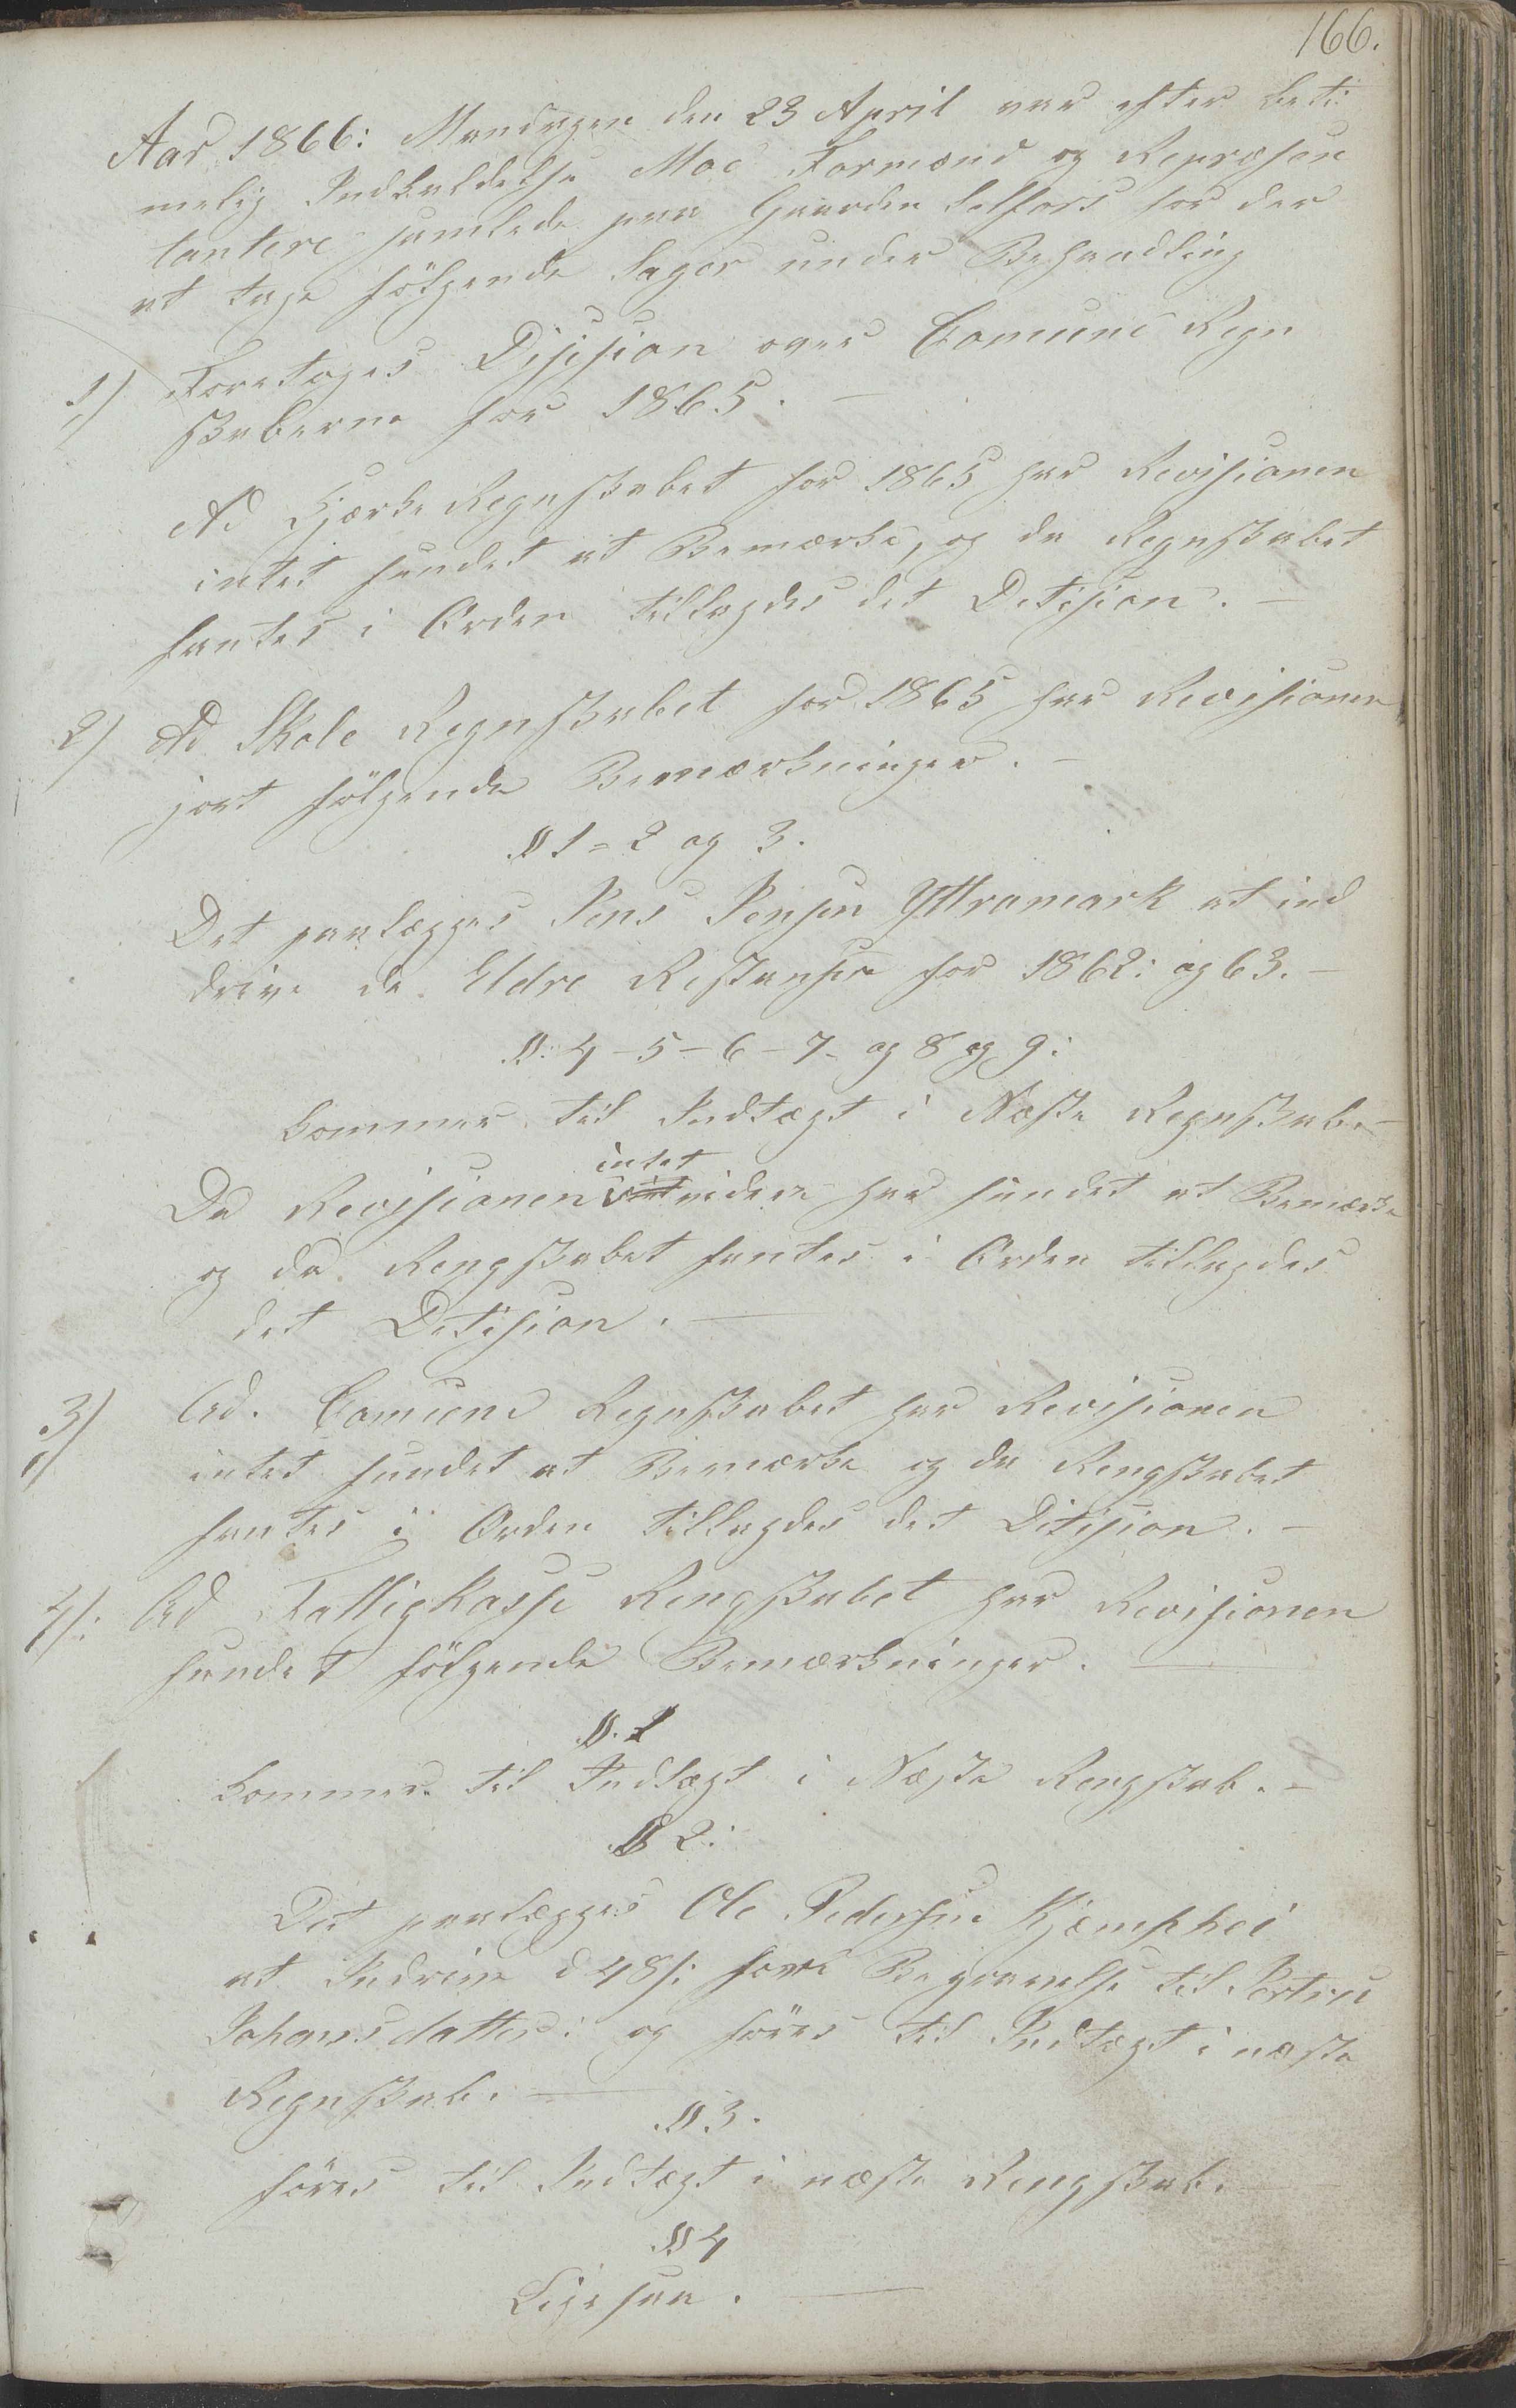 166.
Aar 1866: Mandagen den 23 April var efter beti
melig Indkaldelse Moe Formænd og Repræsen
tantere samlede paa Gaarden Selfors for der
at tage følgende Sager under Behandling
1) Foretoges Disision over Comune Regn
skaberne for 1865. —
Ad Kjørke Regnskabet for 1865 har Revisionen
intet fundet at Bemærke, og da Regnskabet
fantes i Orden tillagdes det Detision. —
2) Ad Skole Regnskabet for 1865 har Revisionen
jort følgende Bemærkninger. —
§ 1 = 2 og 3.
Det paalægges Jens Jensen Yttramark at ind
drive de Eldre Restanser for 1862: og 63. —
§: 4 – 5 – 6 – 7 – og 8 og 9:
kommer til Indtægt i Næste Regnskab. —
intet
Da Revisionen videre har fundet at Bemærke
og da Rengskabet fantes i Orden tillagdes
det Detision. —
3) Ad. Comune Regnskabet har Revisionen
intet fundet at Bemærke og da Rengskabet
fantes i Orden tillagdes det Ditision. —
4/: Ad Fattigkasse Rengskabet har Revisionen
fundet følgende Bemærkninger. —
§. 1
kommer til Indtægt i Næste Rengskab. —
§ 2:
Det paalægges Ole Pedersen Kjæmphei
at Indrive d 48 s: for Begravelse til
Johansdatter: og føres til Indtægt i næste
Regnskab. —
§ 3.
føres til Indtægt i næste Rengskab. —
§ 4
Ligesaa. —